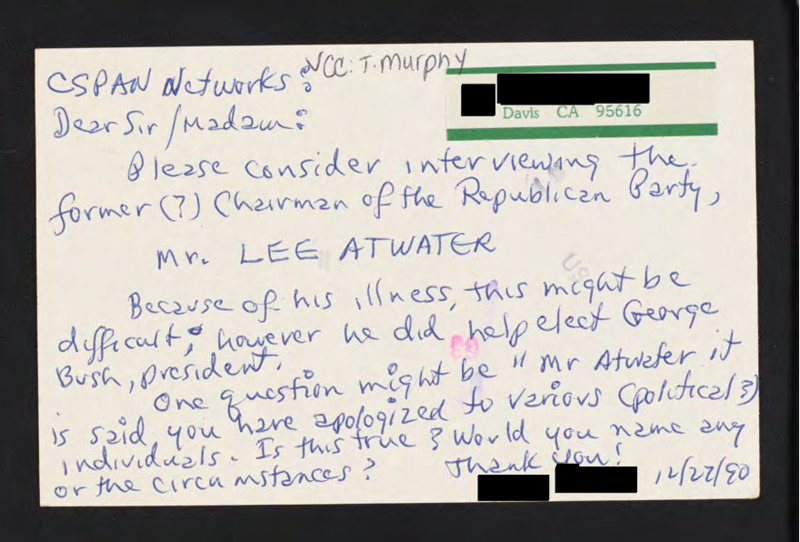 ✓CC: T. Murphy
CSPAN Networks:
Davis CA 95616
Dear Sir/Madam:
Please consider interviewing the
former (?) Chairman of the Republican Party,
Mr. LEE ATWATER
Because of his illness, this might be
difficult, however he did help elect George
Bush, president.
One question might be "Mr Atwater it
is said you have apologized to various (political?)
individuals. Is this true? Would you name any
or the circumstances?
Thank you!
12/27/90